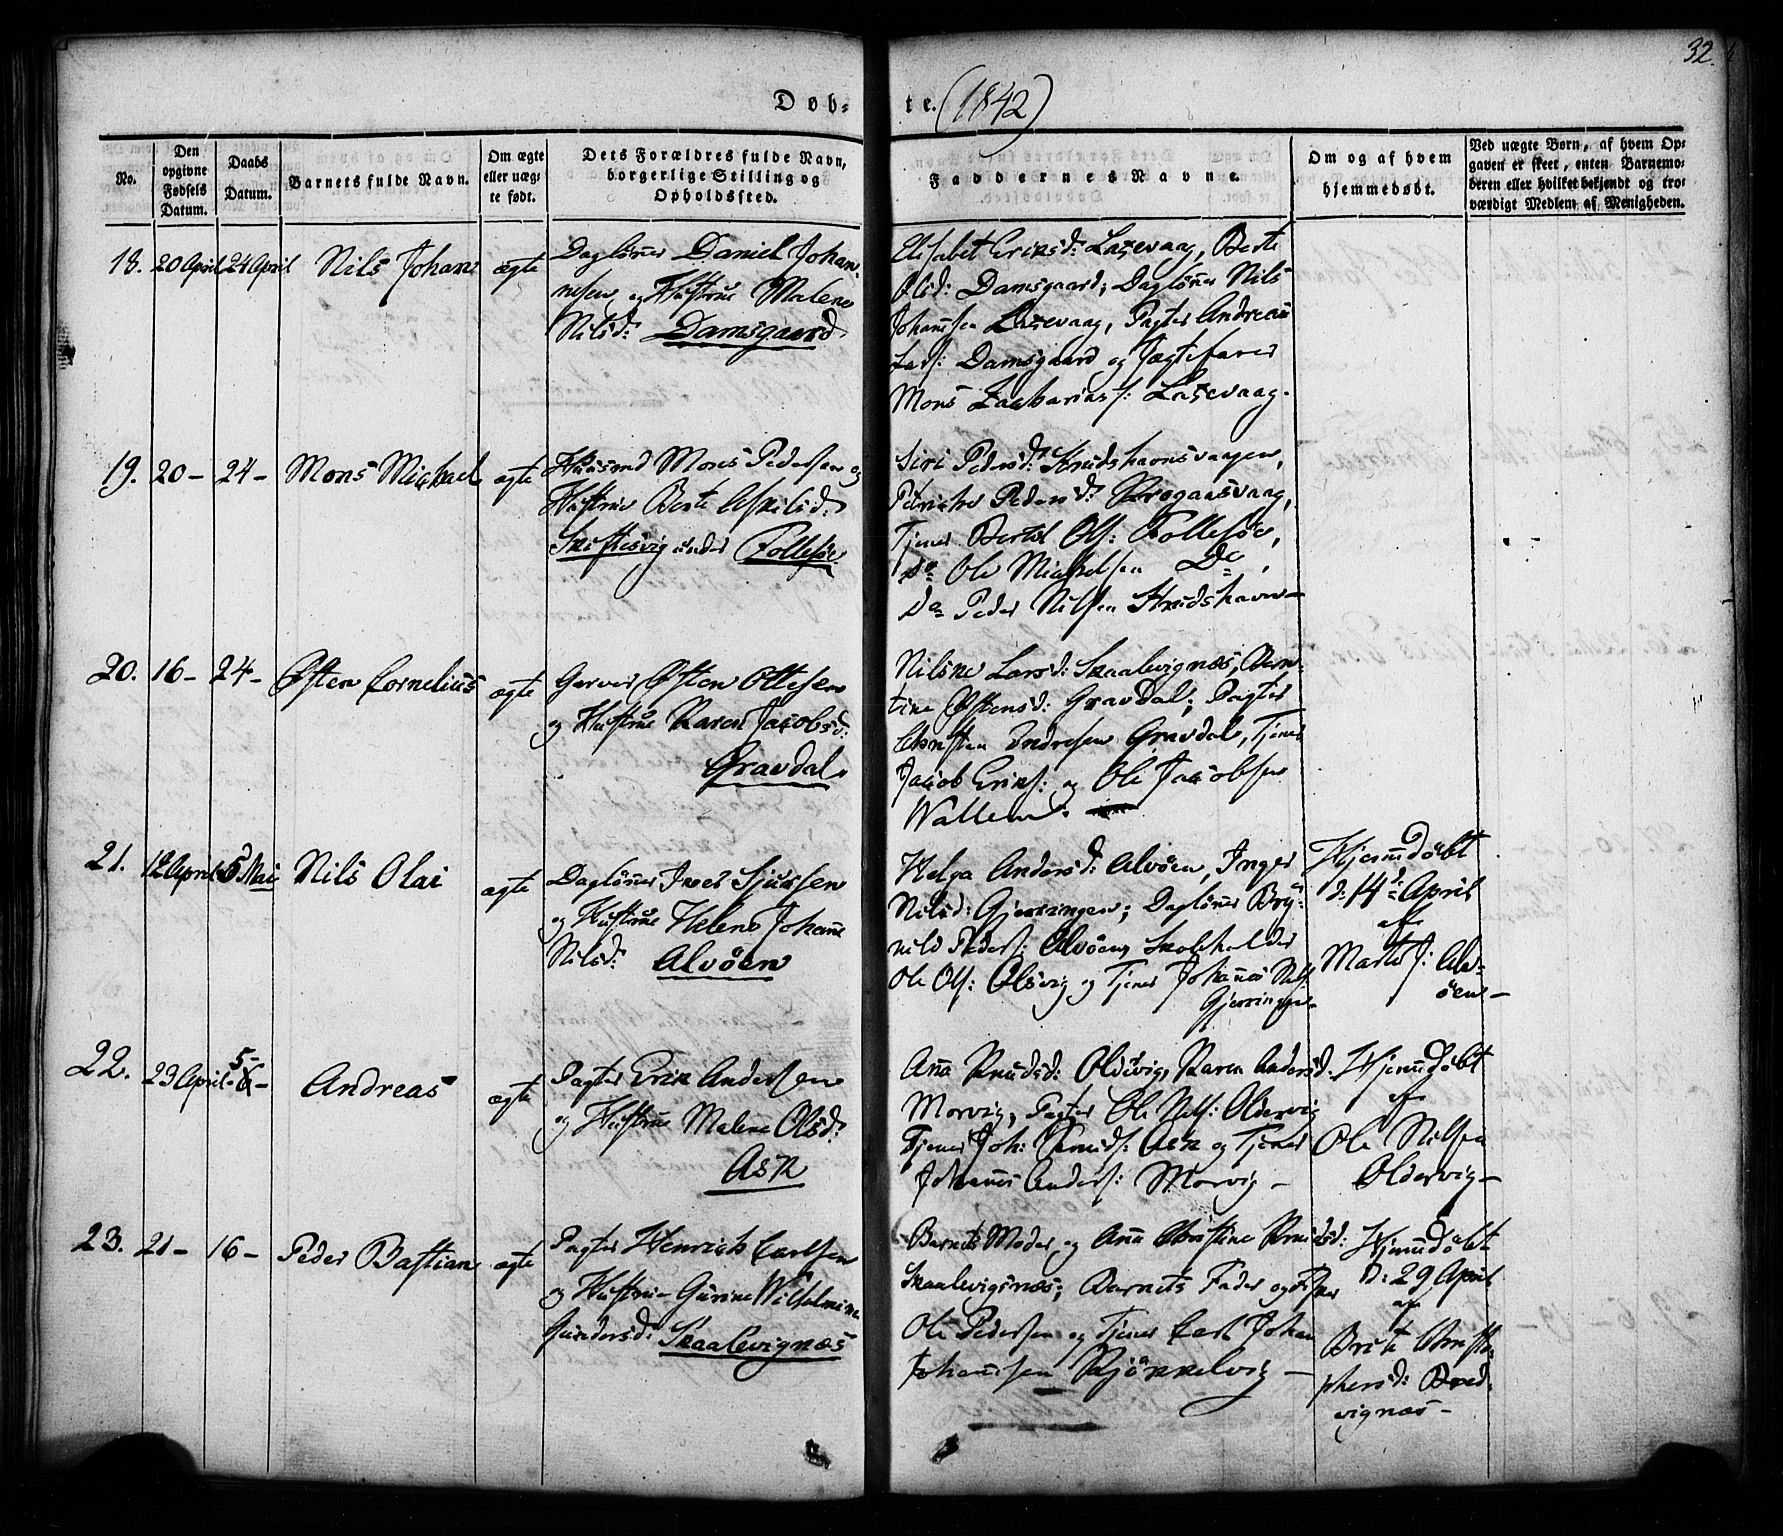 32.
Døb-
te. (1842)
No.
Den
opgivne
Fødsels
Datum.
Daabs
Datum.
Barnets fulde Navn.
Om ægte
eller uæg-
te født.
Dets Forældres fulde Navn,
borgerlige Stilling og
Opholdssted.
Faddernes Navne.
Om og af hvem
hjemmedøbt.
Ved uægte Børn, af hvem Op-
gaven er skeet, enten Barnemo-
deren eller hvilket bekjendt og tro-
værdigt Medlem af Menigheden.
18.
20 April
24 April
Nils Johan
ægte
Daglönner Daniel Johan-
nesen og Hustrue Malene
Nilsd: Damsgaard
Elisabet Eriksd: Laxevaag, Berte
Olsd: Damsgaard; Daglönner Nils
Johannsen Laxevaag, Pagter Andreas
Lars: Damsgaard og Jægtefarer
Mons Zachariass: Laxevaag.
19.
20 -
24 -
Mons Michael
ægte
Huusmd Mons Pedersen og
Hustrue Berte Askilsd:
Skiftesvig under Follesøe.
Siri Pedersd: Strudshavnsvaagen,
Pedersd: Krogaasvaag,
Tjener Bertel Ols: Follesöe,
Do Ole Michelsen Do,
Do Peder Nilsen Strudshavn-
20.
16 -
24 -
Østen Cornelius
ægte
Garver Østen Ottesen
og Hustrue Karen Jacobsd:
Gravdal.
Nilsine Larsd: Skaalevignæs, Bern-
tine Østensd: Gravdal; Pagter
Christen Andresen Gravdal, Tjener
Jacob Eriks: og Ole Jacobsen
Wallem.
21.
12 April
5 Mai
Nils Olai
ægte
Daglönner Iver Sjursen
og Hustrue Helene Johanne
Nilsd: Alvöen
Helga Andersd: Alvöen, Inger
Nilsd: Gjerringen; Daglönner Bry-
nild Peders: Alvöen, Skoleholder
Ole Ols: Olsvig og Tjener Johannes Nils:
Gjerringen-
Hjemmedöbt
d: 14de April
af
Marte J: Alv-
öen-
22.
23 April
5 -
Andreas
ægte
Pagter Erik Andersen
og Hustrue Malene Olsd:
Ask
Anna Knudsd: Oldervig, Karen Andersd:
Morvig; Pagter Ole Nils: Oldervig
Tjener Joh: Knuds: Ask og Tjener
Johannes Anders: Morvig -
Hjemmedöbt
af
Ole Nilsen
Oldervig-
23.
21 -
16 -
Peder Bastian
ægte
Pagter Henrich Carlsen
og Hustrue Gurine Wilhelmine
Gundersd: Skaalevignæs
Barnets Moder og Anna Christine Knudsd:
Skaalevigsnæs; Barnets Fader og Fisker
Ole Pedersen og Tjener Carl Johan
Johannsen Kjökkelvig -
Hjemmedöbt
d: 29 April
af
Brite Christo-
phersd: Bred-
vignæs-